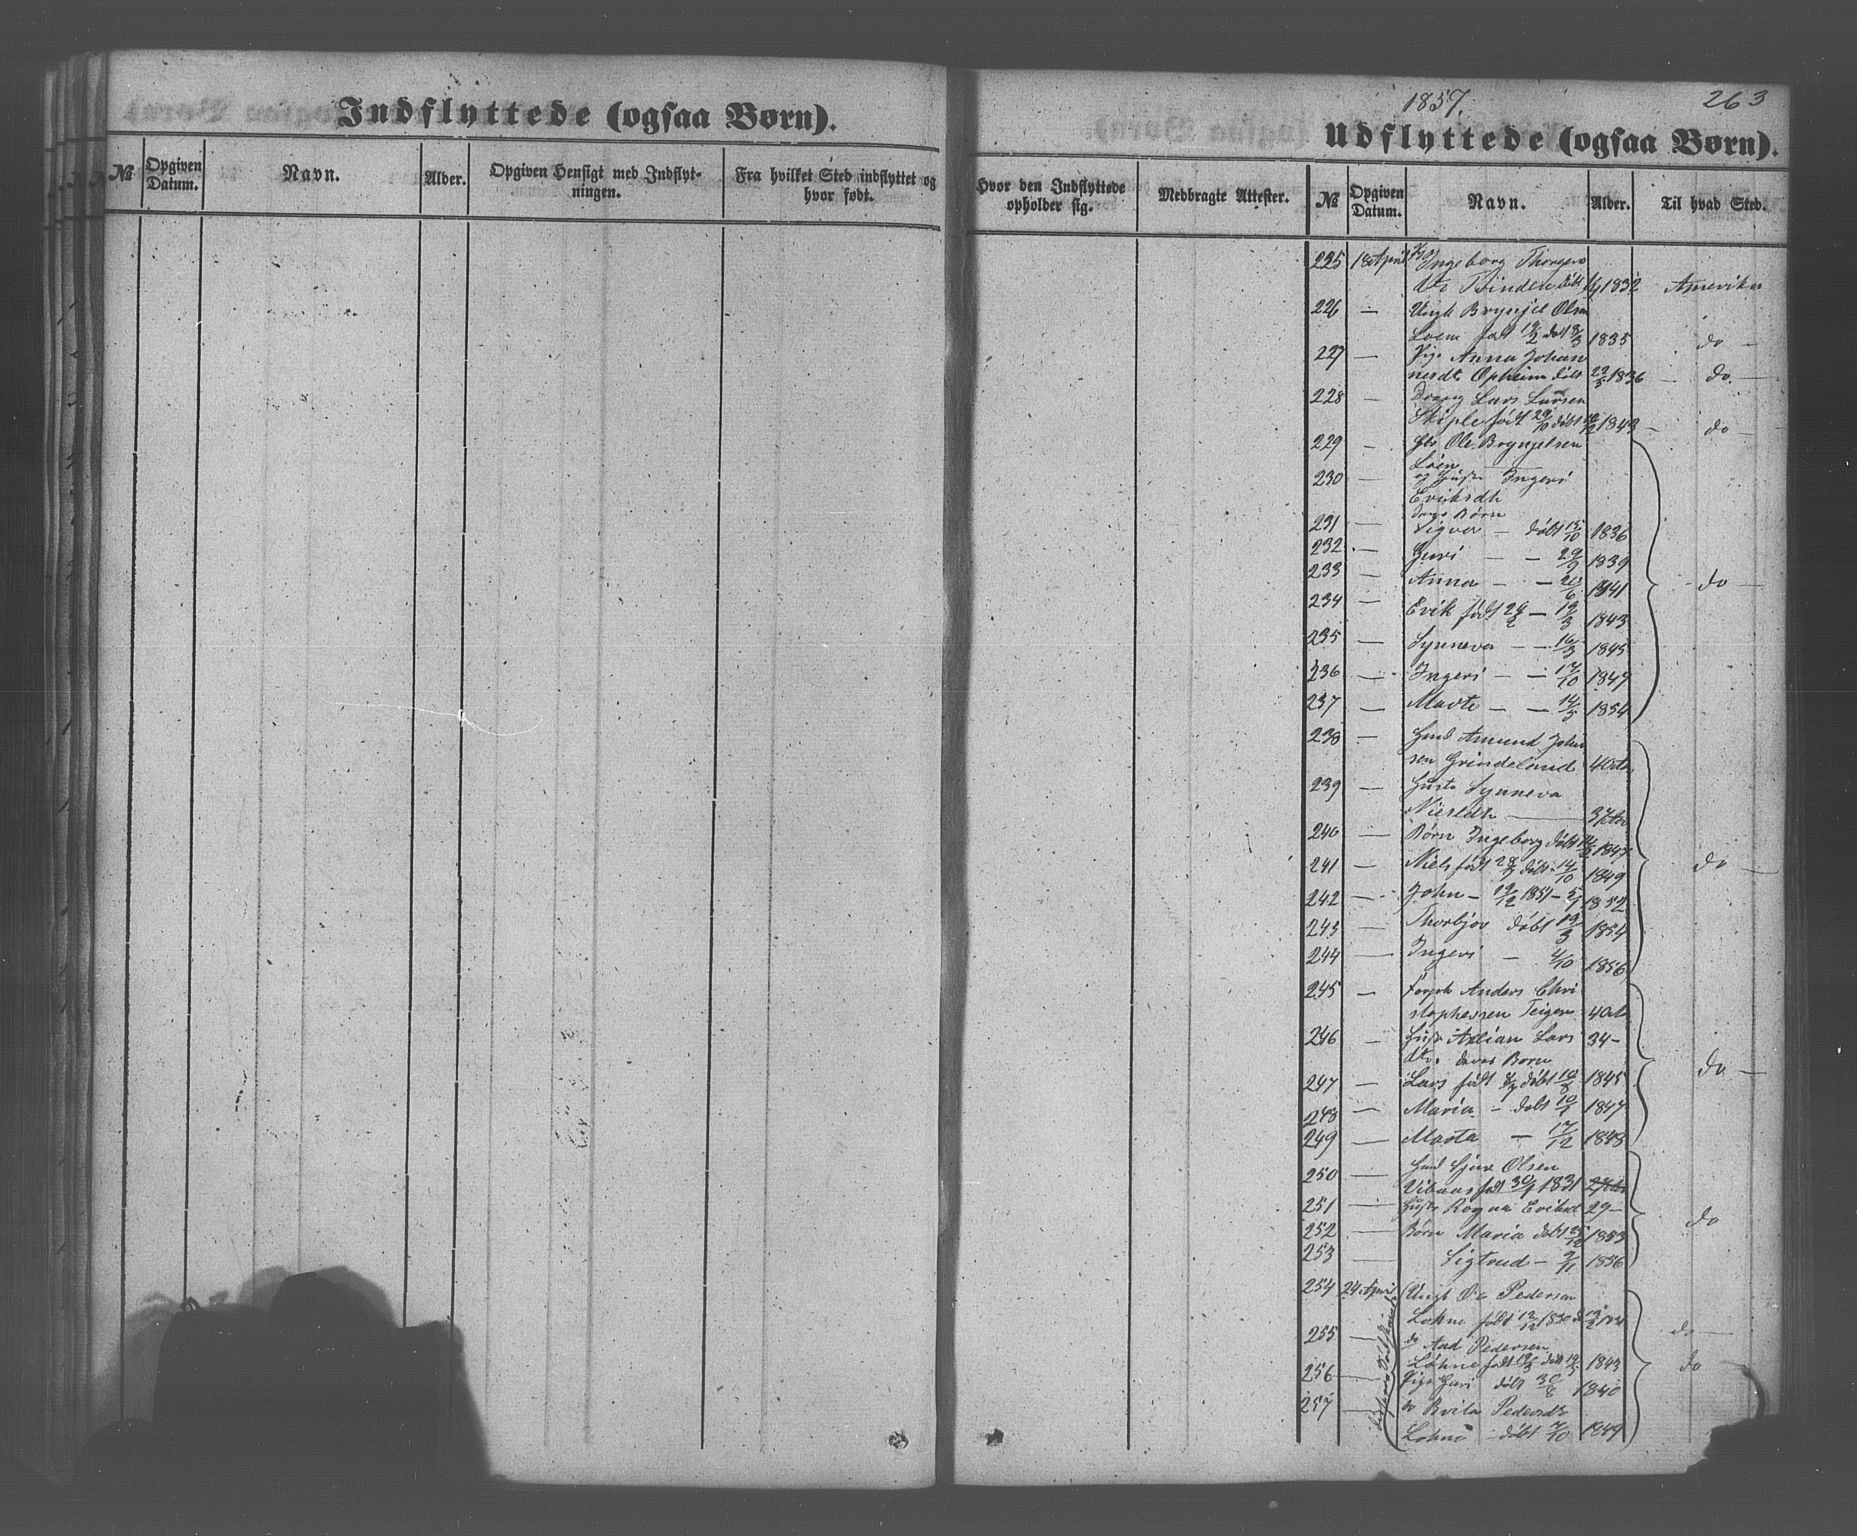 Indflyttede (ogsaa Børn).
№ Opgiven Datum. Navn. Alder. Opgiven Hensigt med Indflytningen. Fra hvilket Sted indflyttet og hvor født.
1857. 263
Udflyttede (ogsaa Børn).
Hvor den Indflyttede opholder sig. Medbragte Attester. № Opgiven Datum. Navn. Alder. Til hvad Sted.
225 18 April Ingeborg
dtr 1832 Amerika
226 — Ungk Brynjel Olsen
født 19/2 døbt 8/3 1835 do —
227 — Pige Anna Johan
nesdt. Opheim døbt 1836 — do. —
228 — Lars Larsen
Skiple født 29/10 døbt 1843 — do —
229 — Ole Brynjelsen
Løen
230 — og Hustr Ingeri
Eriksdtr
deres Børn
231 — Sigver — døbt 15/10 1836
232 — Guri — — 29/9 1839
233 — Anna — — 20/6 1841 - do —
234 — Erik født 24/2 — 19/3 1843
235 — Synneva — — 16/3 1845
236 — Ingeri — — 17/10 1847
237 — Marte — — 14/5 1854
238 — Amund John
sen Grindeland 40
239 — Hustr Synneva
Nielsdtr — 37
240 — Børn Ingeborg døbt 1847
241 — Niels født døbt 14/10 1849 do —
242 — John — 19/12 1851 — 5/1 1852
243 — Thorbjør døbt 19/3 1854
244 — Ingeri — 1856
245 — Anders Chri
stophersen Teigen 40
246 — Hustr Lars 34 —
dtr. deres Børn
247 — Lars født døbt 10/8 1845 do —
248 — Maria — døbt 1847
249 — Marta — 17/12 1848
250 — Sjur Olsen
født 30/1 1831
251 — Hustr Eriksd 29 —
252 — Børn Maria døbt 1853 do
253 — Sigtrud — 9/11 1856
254 24 April Ungk Ole Pedersen
Løhne født
255 — do And Pedersen do —
Løhne født døbt 1843 do
256 — Pige Guri døbt 30/8 1840
257 — do Brita Pedersdtr
Løhne døbt 7/10 1849